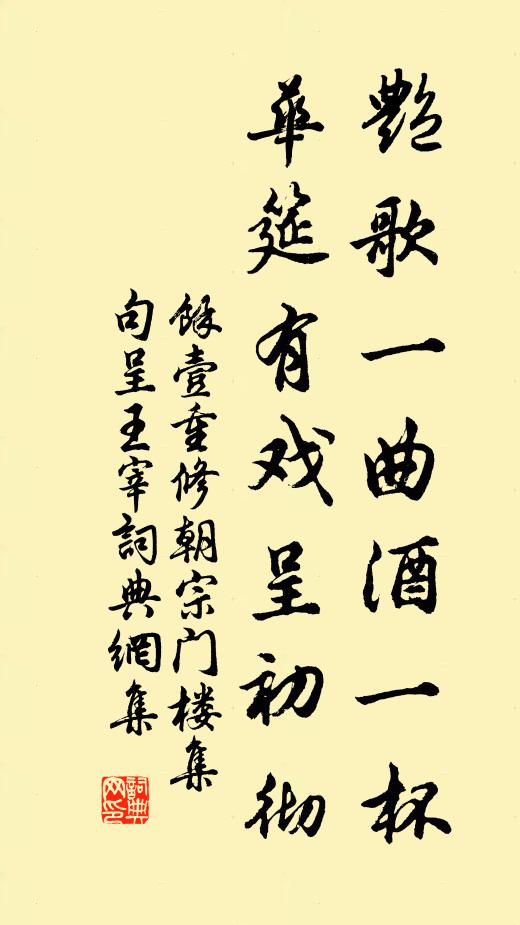 艶歌一曲酒一杯
華筵有戏呈初彻
餘壹重修朝宗门楼集
句呈王宰詞典網集
詞典网印